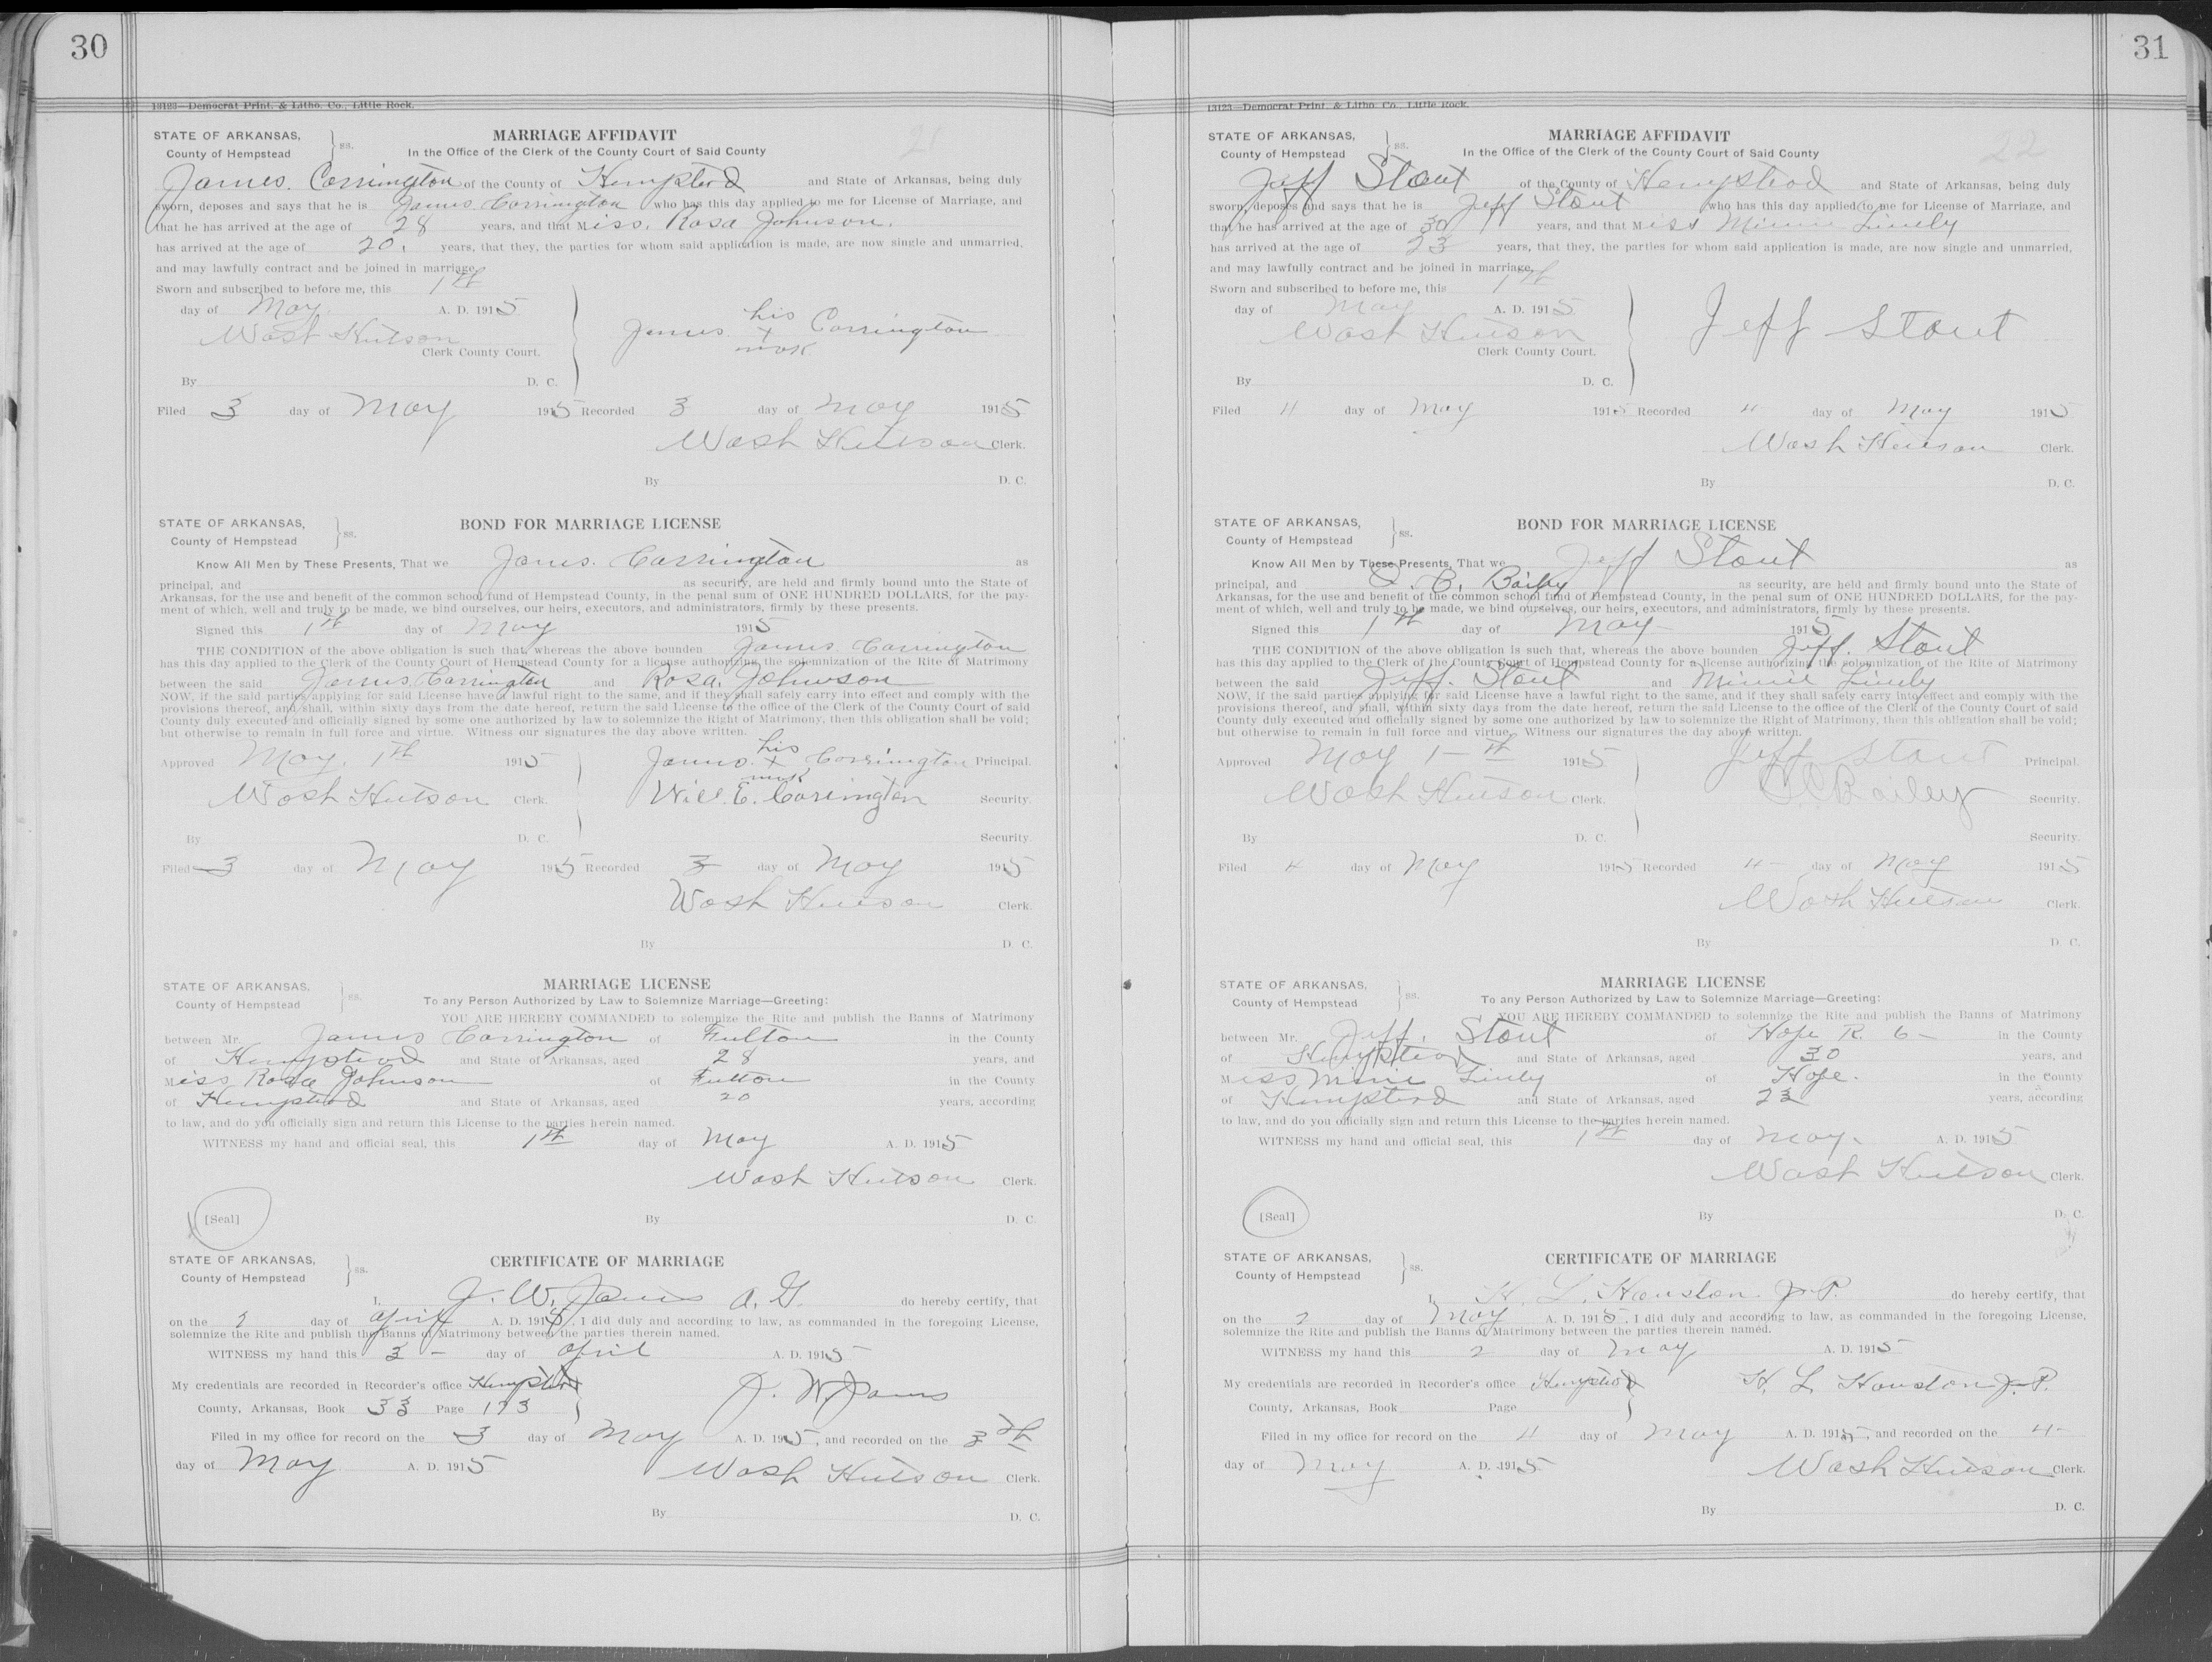 30
13123—Democrat Print. & Litho. Co., Little Rock.
STATE OF ARKANSAS,
County of Hempstead
ss.
MARRIAGE AFFIDAVIT
In the Office of the Clerk of the County Court of Said County
21
James. Corrington of the County of Hempstead and State of Arkansas, being duly
sworn, deposes and says that he is James Corrington who has this day applied to me for License of Marriage, and
that he has arrived at the age of 28 years, and that Miss. Rosa Johnson.
has arrived at the age of 20. years, that they, the parties for whom said application is made, are now single and unmarried,
and may lawfully contract and be joined in marriage.
Sworn and subscribed to before me, this 1th
day of May. A. D. 1915
Wash Hutson
Clerk County Court.
his
James x Corrington
mark
By D. C.
Filed 3 day of May 1915 Recorded 3 day of May 1915
Wash Hutson Clerk.
By D. C.
STATE OF ARKANSAS,
County of Hempstead
ss.
BOND FOR MARRIAGE LICENSE
Know All Men by These Presents, That we James. Corrington as
principal, and as security, are held and firmly bound unto the State of
Arkansas, for the use and benefit of the common school fund of Hempstead County, in the penal sum of ONE HUNDRED DOLLARS, for the pay-
ment of which, well and truly to be made, we bind ourselves, our heirs, executors, and administrators, firmly by these presents.
Signed this 1th day of May 1915
THE CONDITION of the above obligation is such that, whereas the above bounden James. Corrington
has this day applied to the Clerk of the County Court of Hempstead County for a license authorizing the solemnization of the Rite of Matrimony
between the said James. Corrington and Rosa. Johnson
NOW, if the said parties applying for said License have a lawful right to the same, and if they shall safely carry into effect and comply with the
provisions thereof, and shall, within sixty days from the date hereof, return the said License to the office of the Clerk of the County Court of said
County duly executed and officially signed by some one authorized by law to solemnize the Right of Matrimony, then this obligation shall be void;
but otherwise to remain in full force and virtue. Witness our signatures the day above written.
Approved May. 1th 1915
his
James. x Corrington Principal.
mark
Wash Hutson Clerk.
Will. E. Corrington Security.
By D. C. Security.
Filed 3 day of May 1915 Recorded 3 day of May 1915
Wash Hutson Clerk.
By D. C.
STATE OF ARKANSAS,
County of Hempstead
ss.
MARRIAGE LICENSE
To any Person Authorized by Law to Solemnize Marriage—Greeting:
YOU ARE HEREBY COMMANDED to solemnize the Rite and publish the Banns of Matrimony
between Mr. James Corrington of Fulton in the County
of Hempstead and State of Arkansas, aged 28 years, and
Miss Rosa Johnson of Fulton in the County
of Hempstead and State of Arkansas, aged 20 years, according
to law, and do you officially sign and return this License to the parties herein named.
WITNESS my hand and official seal, this 1th day of May A. D. 1915
Wash Hutson Clerk.
[Seal]
By D. C.
STATE OF ARKANSAS,
County of Hempstead
ss.
CERTIFICATE OF MARRIAGE
I, J. W. A. G. do hereby certify, that
on the 2 day of April A. D. 1915, I did duly and according to law, as commanded in the foregoing License,
solemnize the Rite and publish the Banns of Matrimony between the parties therein named.
WITNESS my hand this 3 - day of April A. D. 1915
My credentials are recorded in Recorder's office Hempstead
County, Arkansas, Book 33 Page 173
J. W.
Filed in my office for record on the 3 day of May A. D. 1915, and recorded on the 3th
day of May A. D. 1915
Wash Hutson Clerk.
By D. C.
31
13123—Democrat Print. & Litho. Co., Little Rock.
STATE OF ARKANSAS,
County of Hempstead
ss.
MARRIAGE AFFIDAVIT
In the Office of the Clerk of the County Court of Said County
22
Jeff Stout of the County of Hempstead and State of Arkansas, being duly
sworn, deposes and says that he is Jeff Stout who has this day applied to me for License of Marriage, and
that he has arrived at the age of 30 years, and that Miss Minnie
has arrived at the age of 23 years, that they, the parties for whom said application is made, are now single and unmarried,
and may lawfully contract and be joined in marriage.
Sworn and subscribed to before me, this 1th
day of May A. D. 1915
Wash Hutson
Clerk County Court.
Jeff Stout
By D. C.
Filed 4 day of May 1915 Recorded 4 day of May 1915
Wash Hutson Clerk.
By D. C.
STATE OF ARKANSAS,
County of Hempstead
ss.
BOND FOR MARRIAGE LICENSE
Know All Men by These Presents, That we Jeff Stout as
principal, and C. Baily as security, are held and firmly bound unto the State of
Arkansas, for the use and benefit of the common school fund of Hempstead County, in the penal sum of ONE HUNDRED DOLLARS, for the pay-
ment of which, well and truly to be made, we bind ourselves, our heirs, executors, and administrators, firmly by these presents.
Signed this 1th day of May 1915
THE CONDITION of the above obligation is such that, whereas the above bounden Jeff. Stout
has this day applied to the Clerk of the County Court of Hempstead County for a license authorizing the solemnization of the Rite of Matrimony
between the said Jeff. Stout and Minnie
NOW, if the said parties applying for said License have a lawful right to the same, and if they shall safely carry into effect and comply with the
provisions thereof, and shall, within sixty days from the date hereof, return the said License to the office of the Clerk of the County Court of said
County duly executed and officially signed by some one authorized by law to solemnize the Right of Matrimony, then this obligation shall be void;
but otherwise to remain in full force and virtue. Witness our signatures the day above written.
Approved May 1-th 1915
Jeff Stout Principal.
Wash Hutson Clerk.
Bailey Security.
By D. C. Security.
Filed 4 day of May 1915 Recorded 4- day of May 1915
Wash Hutson Clerk.
By D. C.
STATE OF ARKANSAS,
County of Hempstead
ss.
MARRIAGE LICENSE
To any Person Authorized by Law to Solemnize Marriage—Greeting:
YOU ARE HEREBY COMMANDED to solemnize the Rite and publish the Banns of Matrimony
between Mr. Jeff. Stout of Hope R. 6- in the County
of Hempstead and State of Arkansas, aged 30 years, and
Miss of Hope. in the County
of Hempstead and State of Arkansas, aged 23 years, according
to law, and do you officially sign and return this License to the parties herein named.
WITNESS my hand and official seal, this 1th day of May. A. D. 1915
Wash Hutson Clerk.
[Seal]
By D. C.
STATE OF ARKANSAS,
County of Hempstead
ss.
CERTIFICATE OF MARRIAGE
I, H. L. Houston. J. P. do hereby certify, that
on the 2 day of May A. D. 1915, I did duly and according to law, as commanded in the foregoing License,
solemnize the Rite and publish the Banns of Matrimony between the parties therein named.
WITNESS my hand this 2 day of May A. D. 1915
My credentials are recorded in Recorder's office Hempstead
County, Arkansas, Book Page
H. L. Houston J. P.
Filed in my office for record on the 4 day of May A. D. 1915, and recorded on the 4-
day of May A. D. 1915
Wash Hutson Clerk.
By D. C.